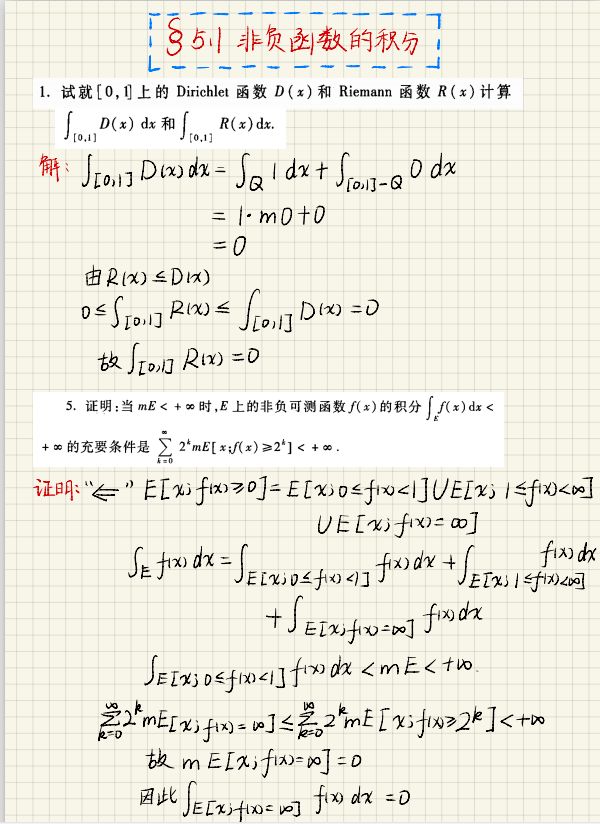 §5.1 非负函数的积分
1. 试就[0,1]上的 Dirichlet 函数 D(x)和 Riemann 函数 R(x)计算
∫_[0,1] D(x) dx 和∫_[0,1] R(x)dx.
解: ∫_[0,1] D(x)dx = ∫_Q 1 dx + ∫_[0,1]-Q 0 dx
= 1·m0+0
= 0
由R(x)≤D(x)
0≤∫_[0,1] R(x)≤ ∫_[0,1] D(x) =0
故∫_[0,1] R(x)=0
5. 证明:当 mE< +∞ 时,E 上的非负可测函数 f(x)的积分 ∫_E f(x)dx<
+∞ 的充要条件是 ∑_{k=0}^∞ 2^k mE[x;f(x)≥2^k]< +∞.
证明: “⇐” E[x;f(x)≥0]= E[x;0≤f(x)<1]∪E[x;1≤f(x)<∞]
∪E[x;f(x)=∞]
∫_E f(x) dx = ∫_E[x;0≤f(x)<1] f(x) dx + ∫_E[x;1≤f(x)<∞] f(x) dx
+ ∫_E[x;f(x)=∞] f(x) dx
∫_E[x;0≤f(x)<1] f(x) dx < mE<+∞.
∑_{k=0}^∞ 2^k mE[x;f(x)=∞] ≤ ∑_{k=0}^∞ 2^k mE[x;f(x)≥2^k]<+∞
故 mE[x;f(x)=∞]=0
因此∫_E[x;f(x)=∞] f(x) dx =0